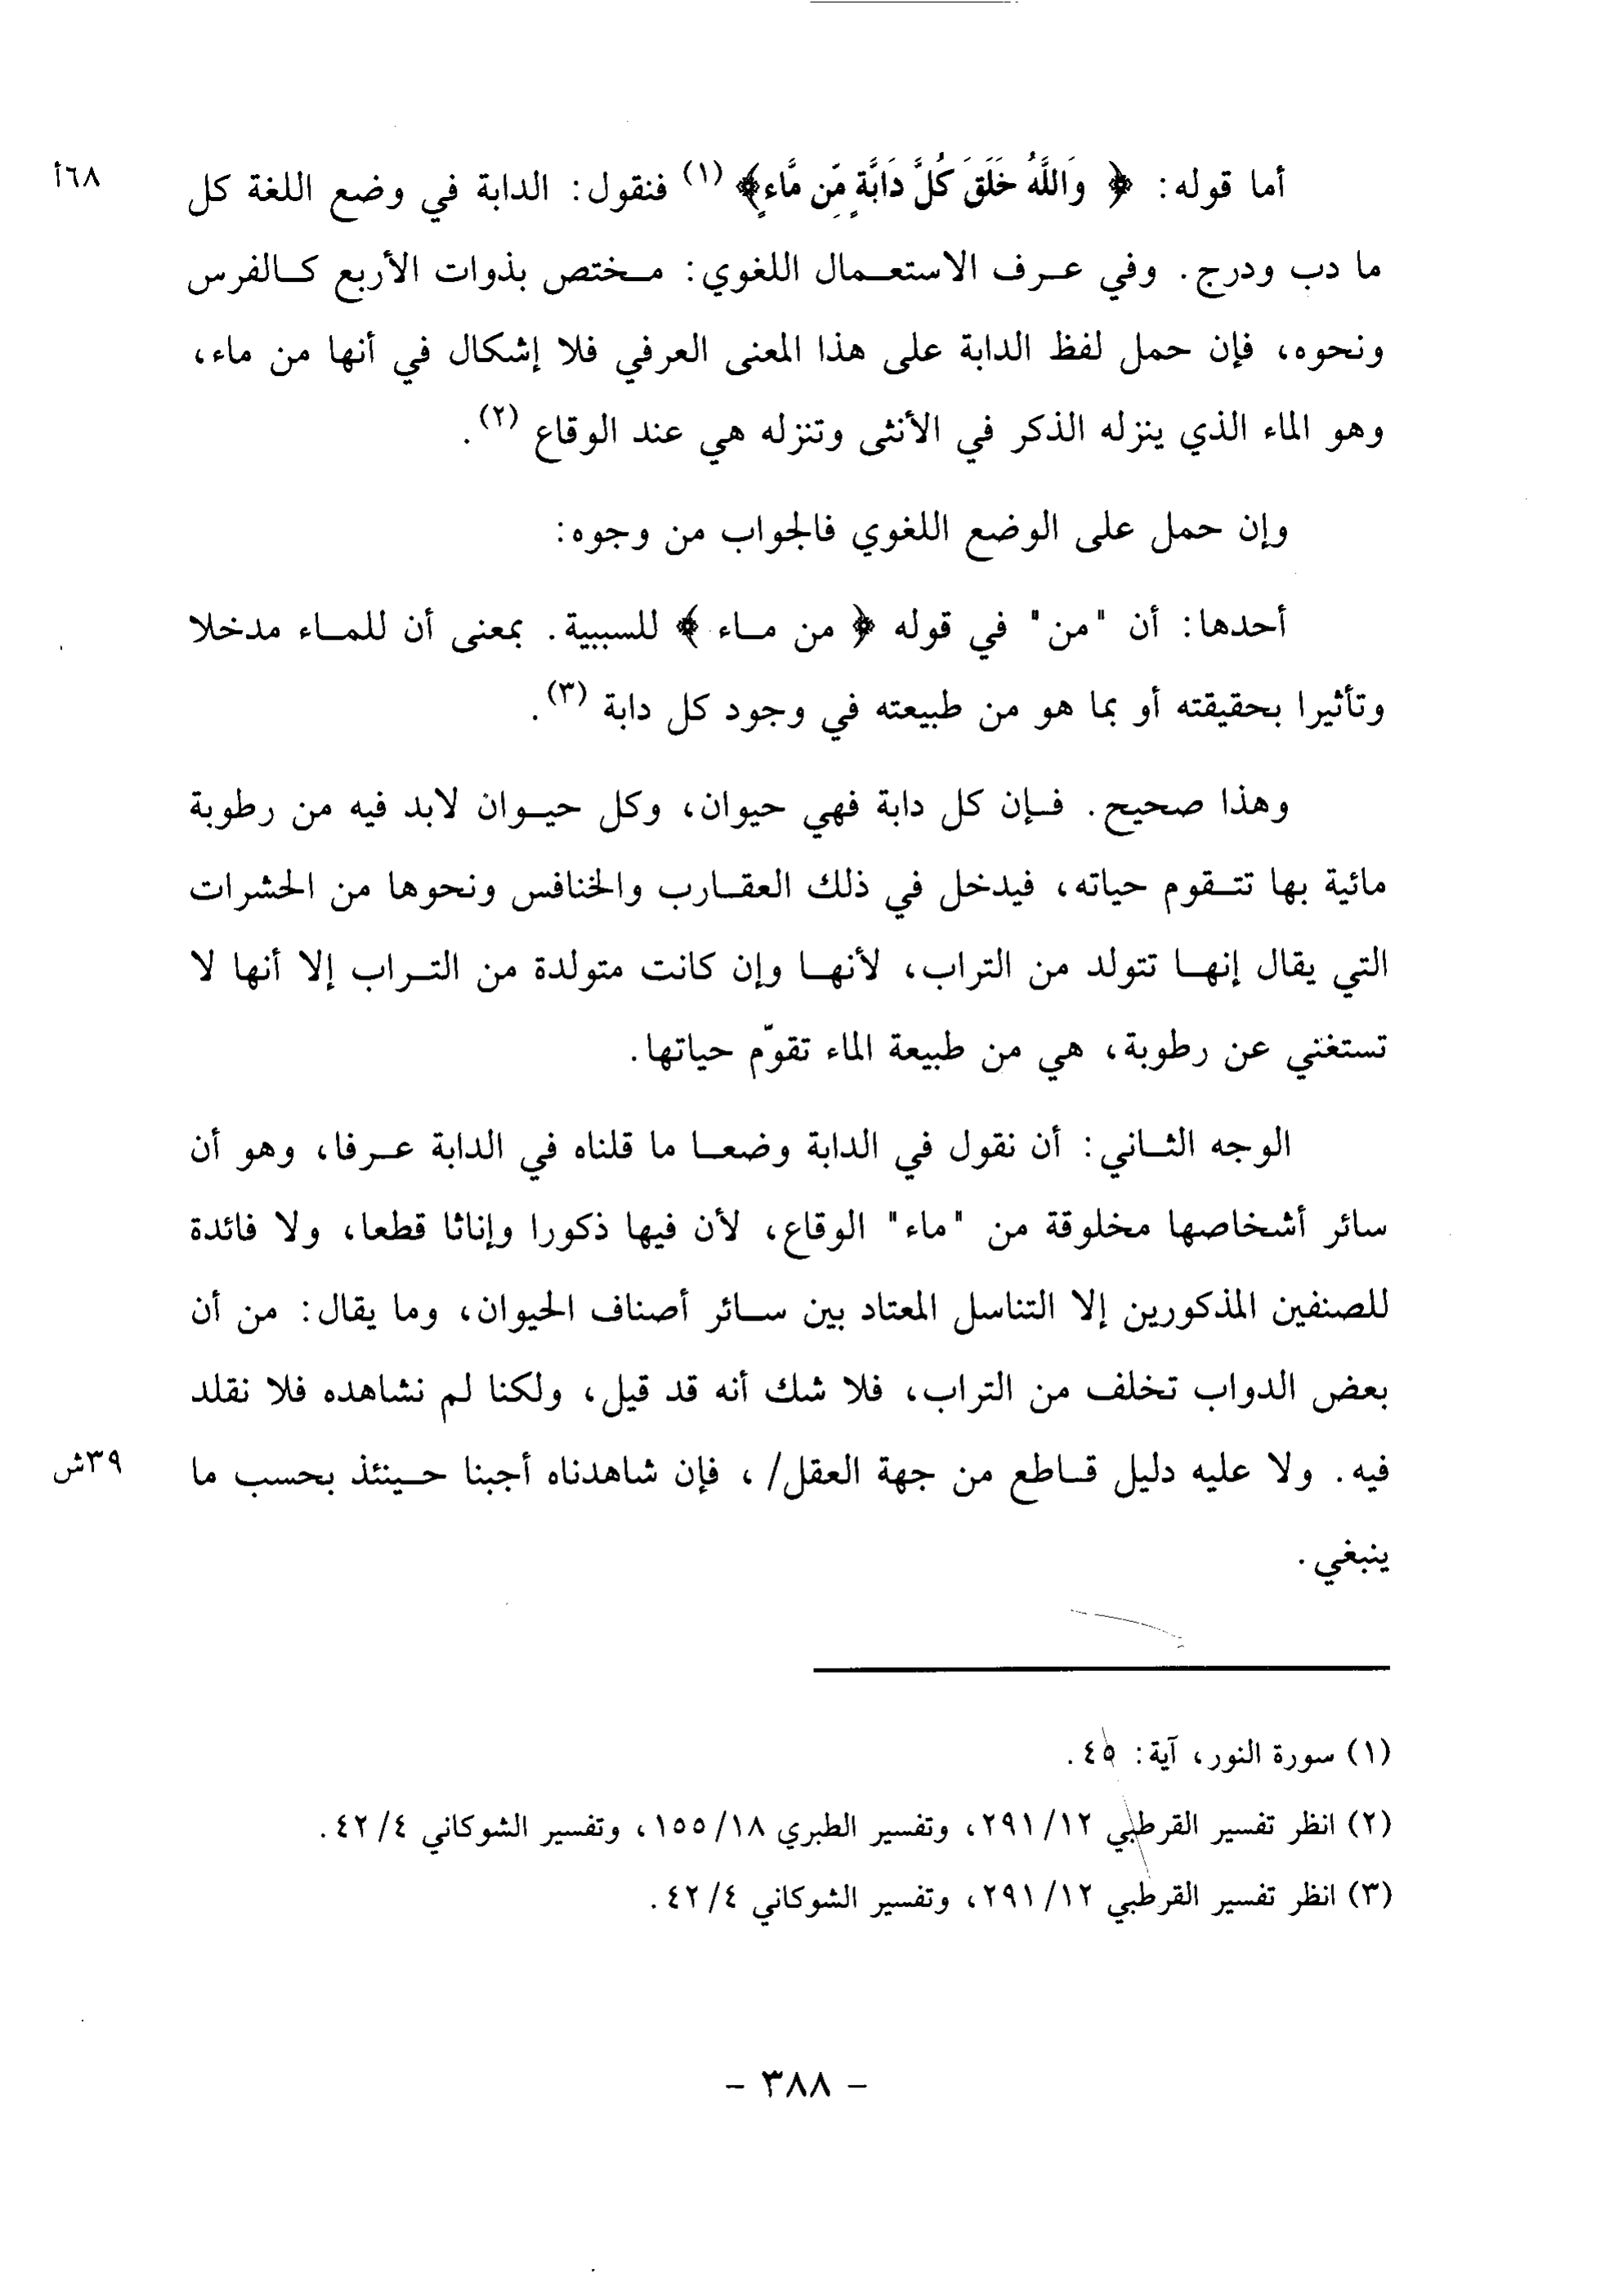 أما قوله: ﴿ وَاللَّهُ خَلَقَ كُلَّ دَابَّةٍ مِّن مَّاءٍ﴾ (١) فنقول: الدابة في وضع اللغة كل
٦٨أ
ما دب ودرج. وفي عرف الاستعمال اللغوي: مختص بذوات الأربع كالفرس
ونحوه، فإن حمل لفظ الدابة على هذا المعنى العرفي فلا إشكال في أنها من ماء،
وهو الماء الذي ينزله الذكر في الأنثى وتنزله هي عند الوقاع (٢).
وإن حمل على الوضع اللغوي فالجواب من وجوه:
أحدها: أن "من" في قوله ﴿ من ماء ﴾ للسببية. بمعنى أن للماء مدخلا
وتأثيرا بحقيقته أو بما هو من طبيعته في وجود كل دابة (٣).
وهذا صحيح. فإن كل دابة فهي حيوان، وكل حيوان لابد فيه من رطوبة
مائية بها تتقوم حياته، فيدخل في ذلك العقارب والخنافس ونحوها من الحشرات
التي يقال إنها تتولد من التراب، لأنها وإن كانت متولدة من التراب إلا أنها لا
تستغني عن رطوبة، هي من طبيعة الماء تقوّم حياتها.
الوجه الثاني: أن نقول في الدابة وضعا ما قلناه في الدابة عرفا، وهو أن
سائر أشخاصها مخلوقة من "ماء" الوقاع، لأن فيها ذكورا وإناثا قطعا، ولا فائدة
للصنفين المذكورين إلا التناسل المعتاد بين سائر أصناف الحيوان، وما يقال: من أن
بعض الدواب تخلف من التراب، فلا شك أنه قد قيل، ولكنا لم نشاهده فلا نقلد
فيه. ولا عليه دليل قاطع من جهة العقل/ ، فإن شاهدناه أجبنا حينئذ بحسب ما
٣٩ش
ينبغي.
(١) سورة النور، آية: ٤٥.
(٢) انظر تفسير القرطبي ١٢/ ٢٩١، وتفسير الطبري ١٨/ ١٥٥، وتفسير الشوكاني ٤/ ٤٢.
(٣) انظر تفسير القرطبي ١٢/ ٢٩١، وتفسير الشوكاني ٤/ ٤٢.
- ٣٨٨ -